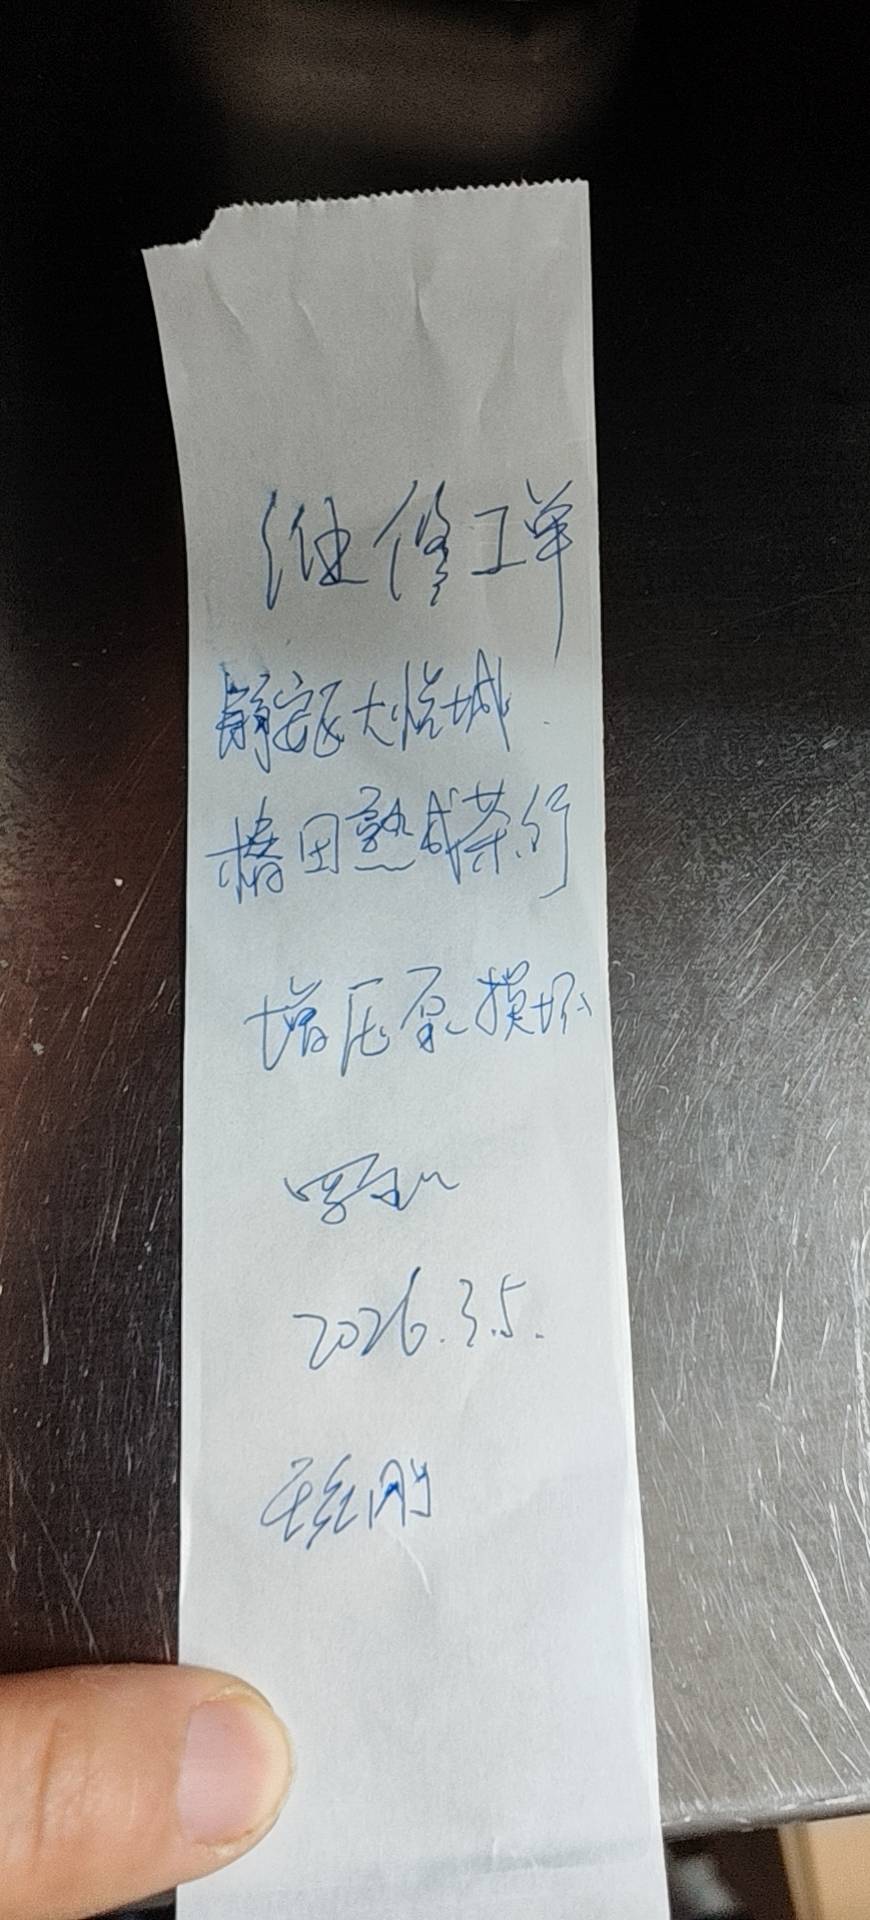 维修工单
静安区大悦城
椿田熟成茶行
增压泵损坏
2026.3.5.